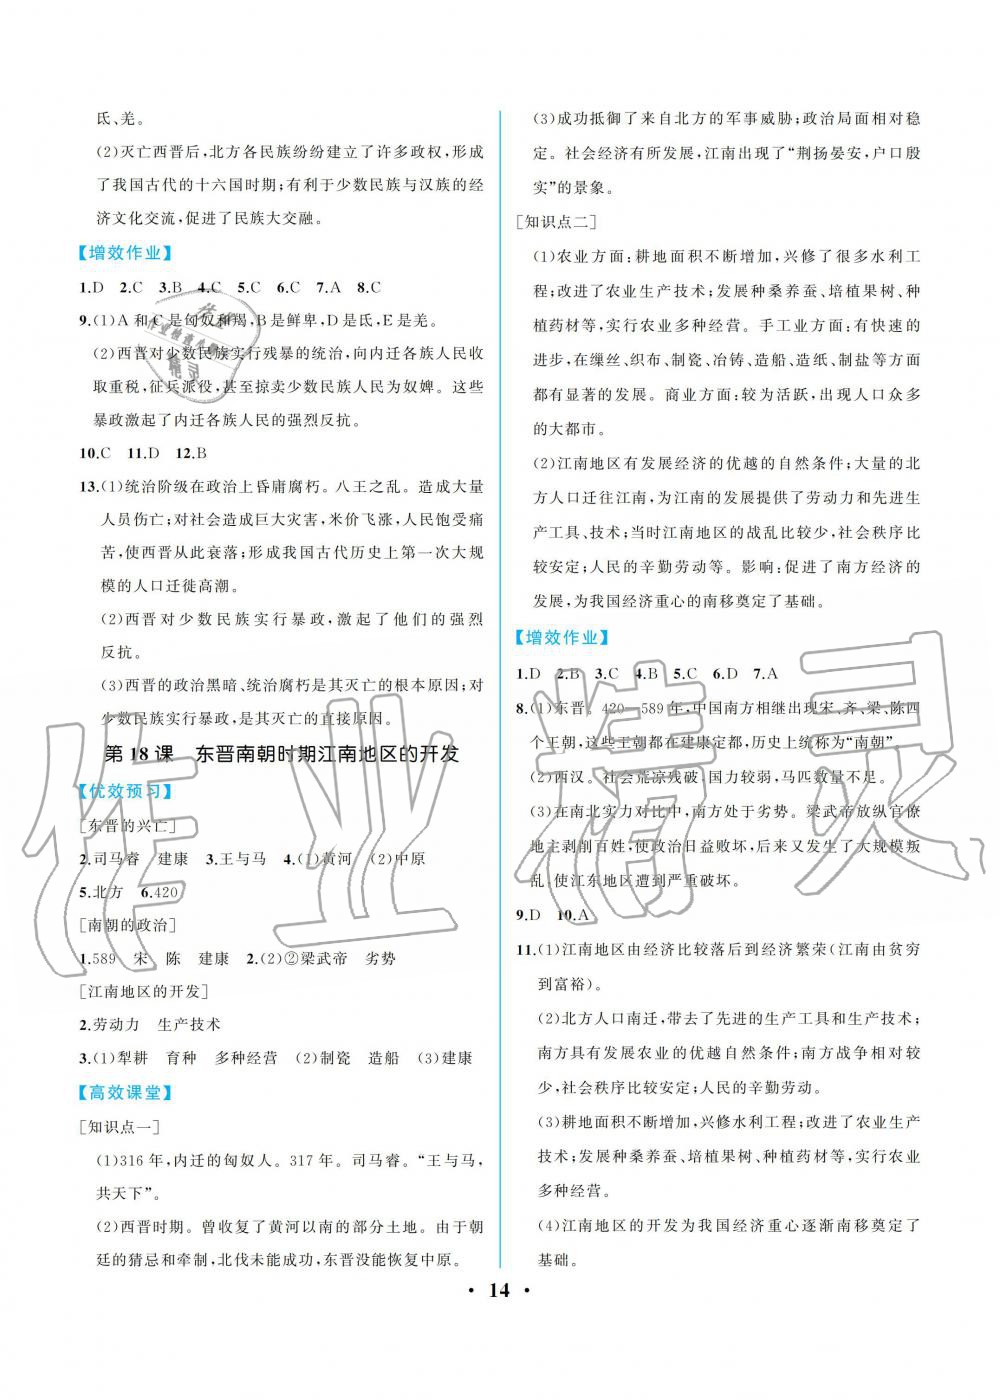 氐、羌。
(2)灭亡西晋后,北方各民族纷纷建立了许多政权,形成
了我国古代的十六国时期;有利于少数民族与汉族的经
济文化交流,促进了民族大交融。
【增效作业】
1.D 2.C 3.B 4.C 5.C 6.C 7.A 8.C
9.(1)A 和 C 是匈奴和羯,B 是鲜卑,D 是氐,E 是羌。
(2)西晋对少数民族实行残暴的统治,向内迁各族人民收
取重税,征兵派役,甚至掠卖少数民族人民为奴婢。这些
暴政激起了内迁各族人民的强烈反抗。
10.C 11.D 12.B
13.(1)统治阶级在政治上昏庸腐朽。八王之乱。造成大量
人员伤亡;对社会造成巨大灾害,米价飞涨,人民饱受痛
苦,使西晋从此衰落;形成我国古代历史上第一次大规
模的人口迁徙高潮。
(2)西晋对少数民族实行暴政,激起了他们的强烈
反抗。
(3)西晋的政治黑暗、统治腐朽是其灭亡的根本原因,对
少数民族实行暴政,是其灭亡的直接原因。
第 18 课 东晋南朝时期江南地区的开发
【优效预习】
[东晋的兴亡]
2.司马睿 建康 3.王与马 4.(1)黄河 (2)中原
5.北方 6.420
[南朝的政治]
1.589 宋 陈 建康 2.(2)②梁武帝 劣势
[江南地区的开发]
2.劳动力 生产技术
3.(1)犁耕 育种 多种经营 (2)制瓷 造船 (3)建康
【高效课堂】
[知识点一]
(1)316 年,内迁的匈奴人。317 年。司马睿。“王与马,
共天下”。
(2)西晋时期。曾收复了黄河以南的部分土地。由于朝
廷的猜忌和牵制,北伐未能成功,东晋没能恢复中原。
(3)成功抵御了来自北方的军事威胁;政治局面相对稳
定。社会经济有所发展,江南出现了“荆扬晏安,户口殷
实”的景象。
[知识点二]
(1)农业方面:耕地面积不断增加,兴修了很多水利工
程;改进了农业生产技术;发展种桑养蚕、培植果树、种
植药材等,实行农业多种经营。手工业方面:有快速的
进步,在缫丝、织布、制瓷、冶铸、造船、造纸、制盐等方面
都有显著的发展。商业方面:较为活跃,出现人口众多
的大都市。
(2)江南地区有发展经济的优越的自然条件;大量的北
方人口迁往江南,为江南的发展提供了劳动力和先进生
产工具、技术;当时江南地区的战乱比较少,社会秩序比
较安定;人民的辛勤劳动等。影响:促进了南方经济的
发展,为我国经济重心的南移奠定了基础。
【增效作业】
1.D 2.B 3.C 4.B 5.C 6.D 7.A
8.(1)东晋。420—589 年,中国南方相继出现宋、齐、梁、陈四
个王朝,这些王朝都在建康定都,历史上统称为“南朝”。
(2)西汉。社会荒凉残破,国力较弱,马匹数量不足。
(3)在南北实力对比中,南方处于劣势。梁武帝放纵官僚
地主剥削百姓,使政治日益败坏,后来又发生了大规模叛
乱,使江东地区遭到严重破坏。
9.D 10.A
11.(1)江南地区由经济比较落后到经济繁荣(江南由贫穷
到富裕)。
(2)北方人口南迁,带去了先进的生产工具和生产技术;
南方具有发展农业的优越自然条件;南方战争相对较
少,社会秩序比较安定;人民的辛勤劳动。
(3)耕地面积不断增加,兴修水利工程;改进了农业生产
技术;发展种桑养蚕、培植果树、种植药材等,实行农业
多种经营。
(4)江南地区的开发为我国经济重心逐渐南移奠定了
基础。
· 14 ·
作业精灵